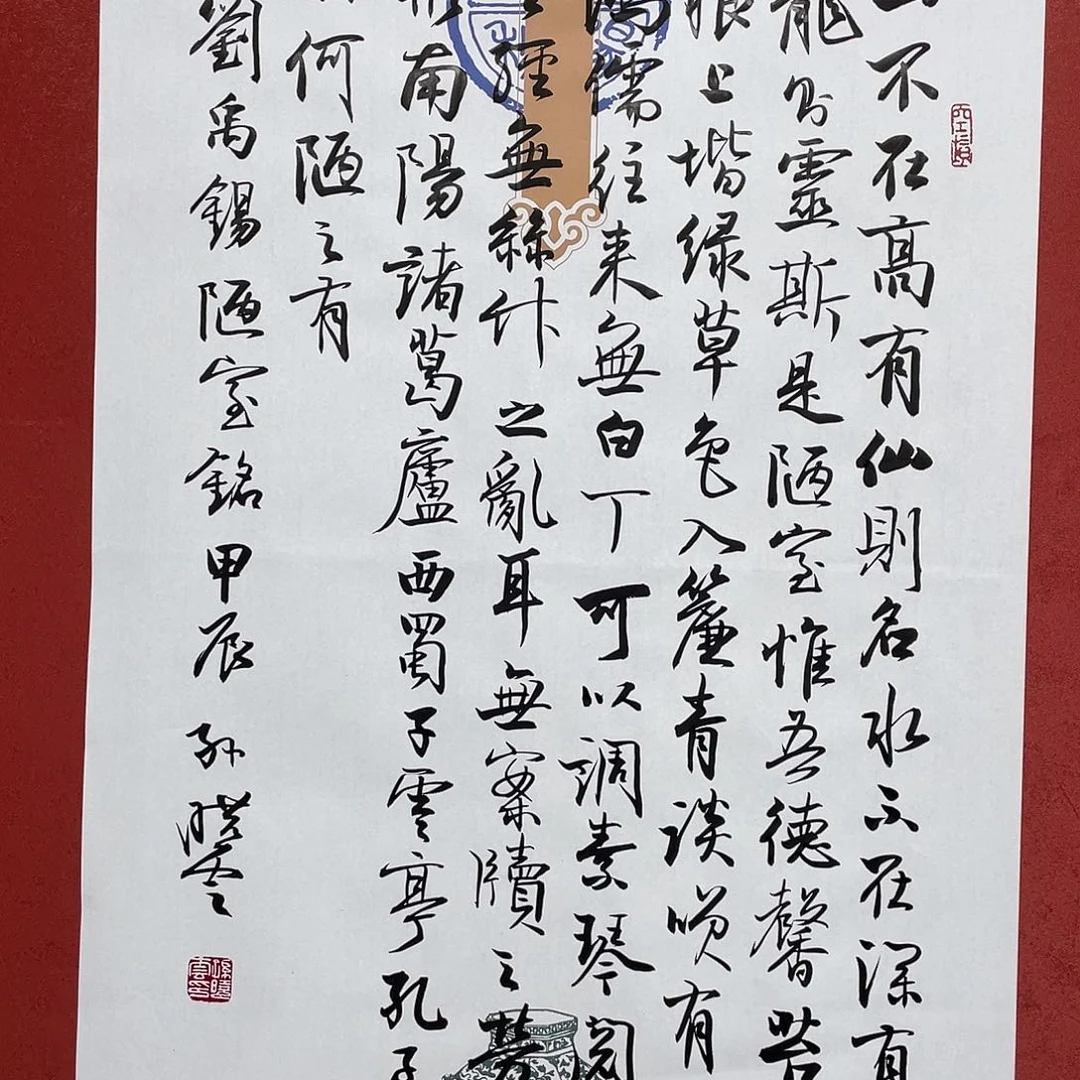 山不在高有仙則名水不在深有
龍則靈斯是陋室惟吾德馨苔
痕上堦綠草色入簾青談咲有
鴻儒往来無白丁可以調素琴閱
經無絲竹之亂耳無案牘之勞
形南陽諸葛廬西蜀子雲亭孔子
何陋之有
劉禹錫陋室銘甲辰孫曉雲
孫曉雲印